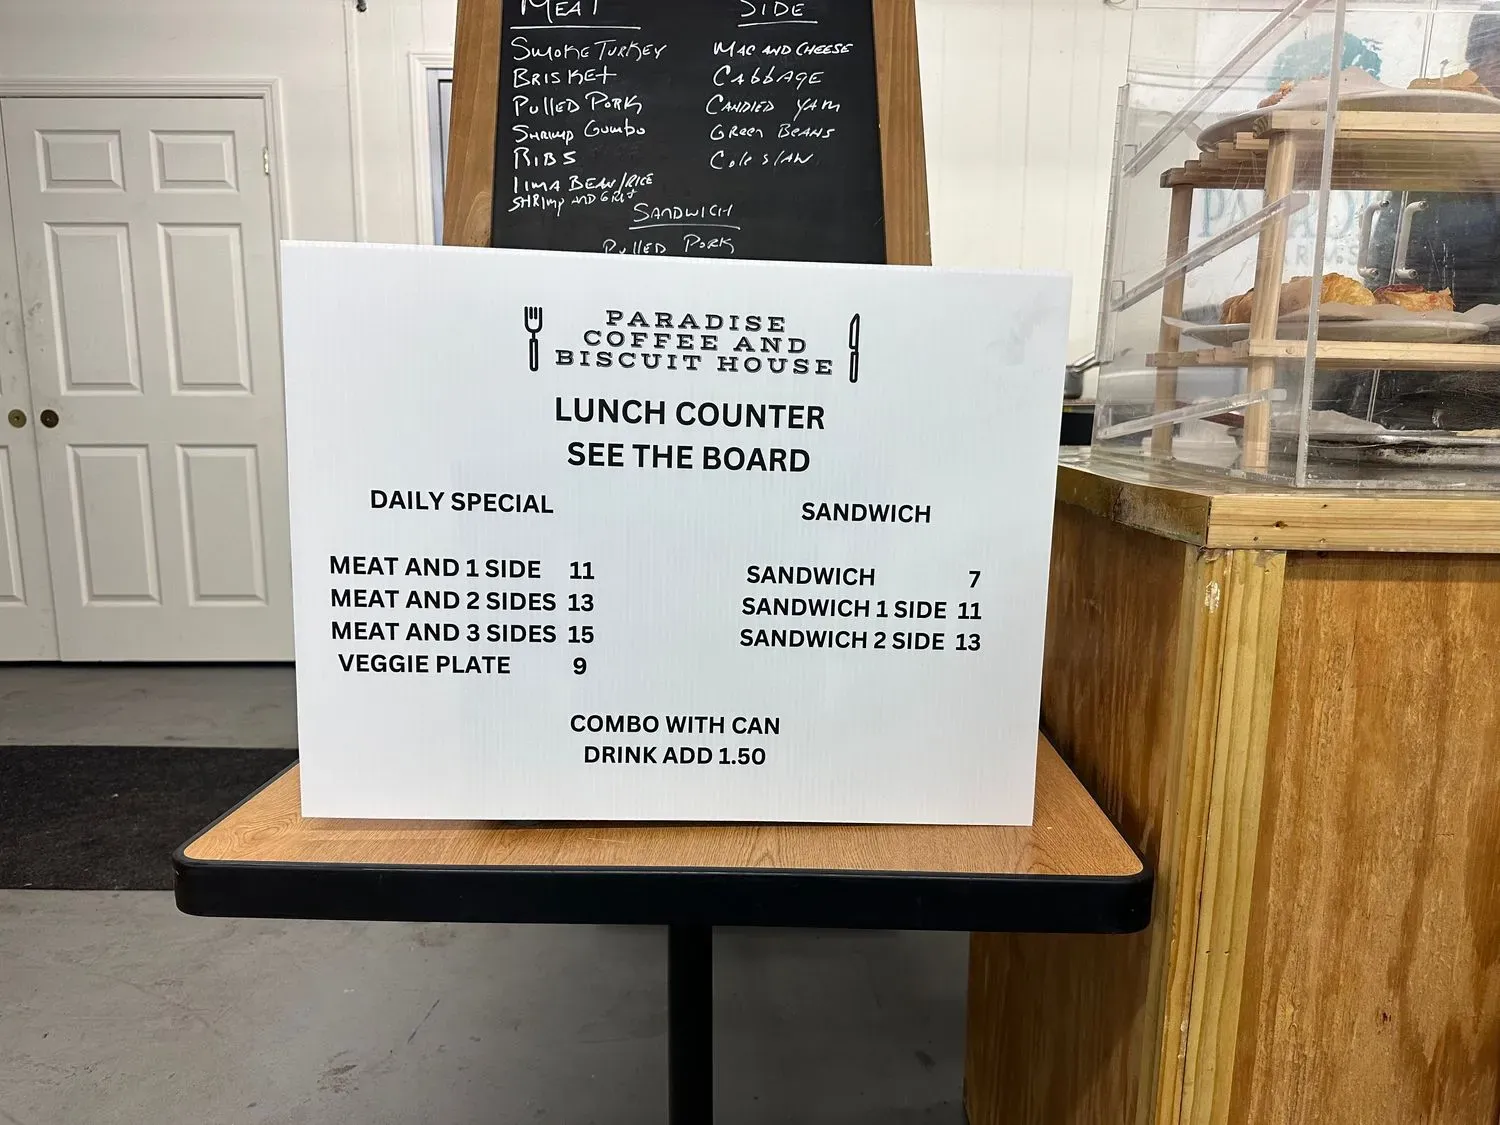 MEAT
SMOKE TURKEY
BRISKET
PULLED PORK
SHRIMP GUMBO
RIBS
LIMA BEAN/RICE
SHRIMP AND GRIT
SIDE
MAC AND CHEESE
CABBAGE
CANDIED YAM
GREEN BEANS
COLE SLAW
SANDWICH
PULLED PORK
PARADISE
COFFEE AND
BISCUIT HOUSE
LUNCH COUNTER
SEE THE BOARD
DAILY SPECIAL
MEAT AND 1 SIDE 11
MEAT AND 2 SIDES 13
MEAT AND 3 SIDES 15
VEGGIE PLATE 9
SANDWICH
SANDWICH 7
SANDWICH 1 SIDE 11
SANDWICH 2 SIDE 13
COMBO WITH CAN
DRINK ADD 1.50